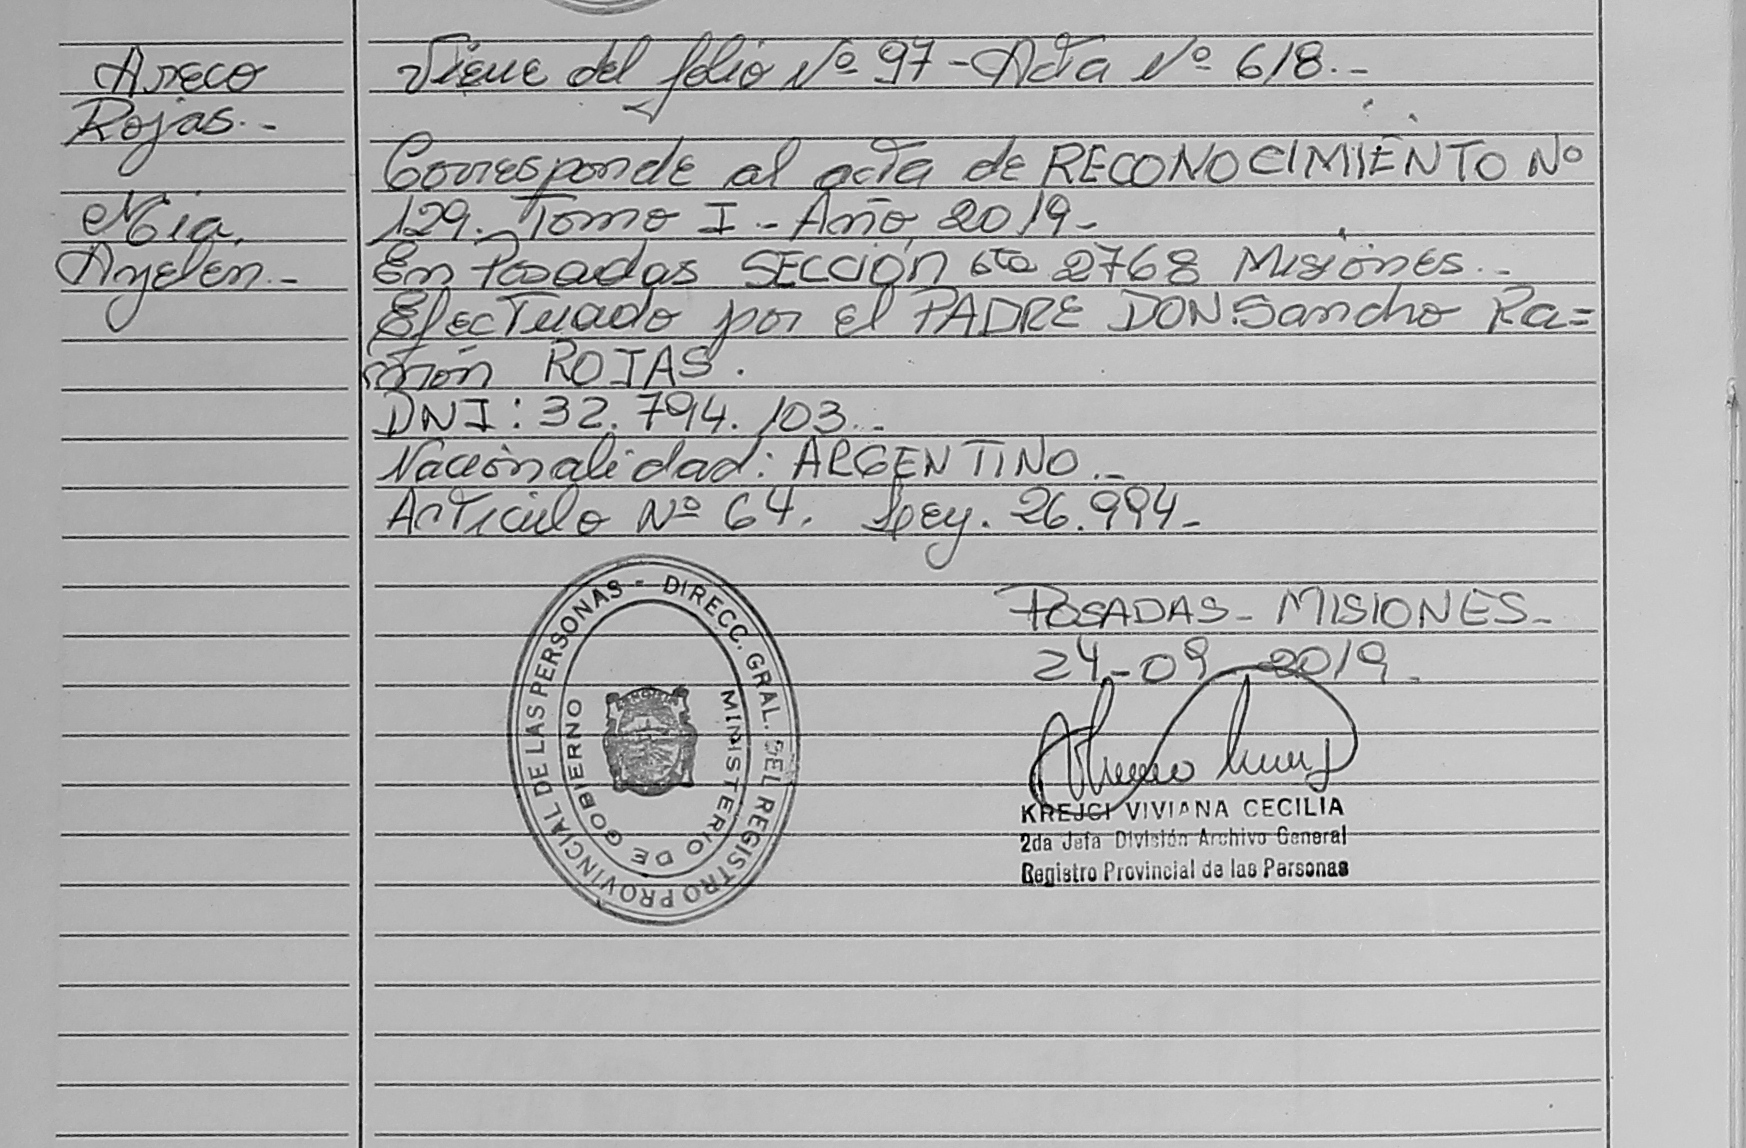 Areco
Rojas.-
Mia
Ayelen.-
Viene del folio Nº 97 - Acta Nº 618.-
Corresponde al acta de RECONOCIMIENTO Nº
129. Tomo I - Año 2019-
En Posadas SECCIÓN 6ta 2768 Misiones.-
Efectuado por el PADRE DON: Sancho Ra=
món ROJAS.
DNI: 32.794.103.-
Nacionalidad: ARGENTINO.-
Articulo Nº 64. Ley. 26.994-
POSADAS - MISIONES-
24-09-2019.
DIRECC. GRAL. DEL REGISTRO PROVINCIAL DE LAS PERSONAS -
MINISTERIO DE GOBIERNO
KREJCI VIVIANA CECILIA
2da Jefa División Archivo General
Registro Provincial de las Personas